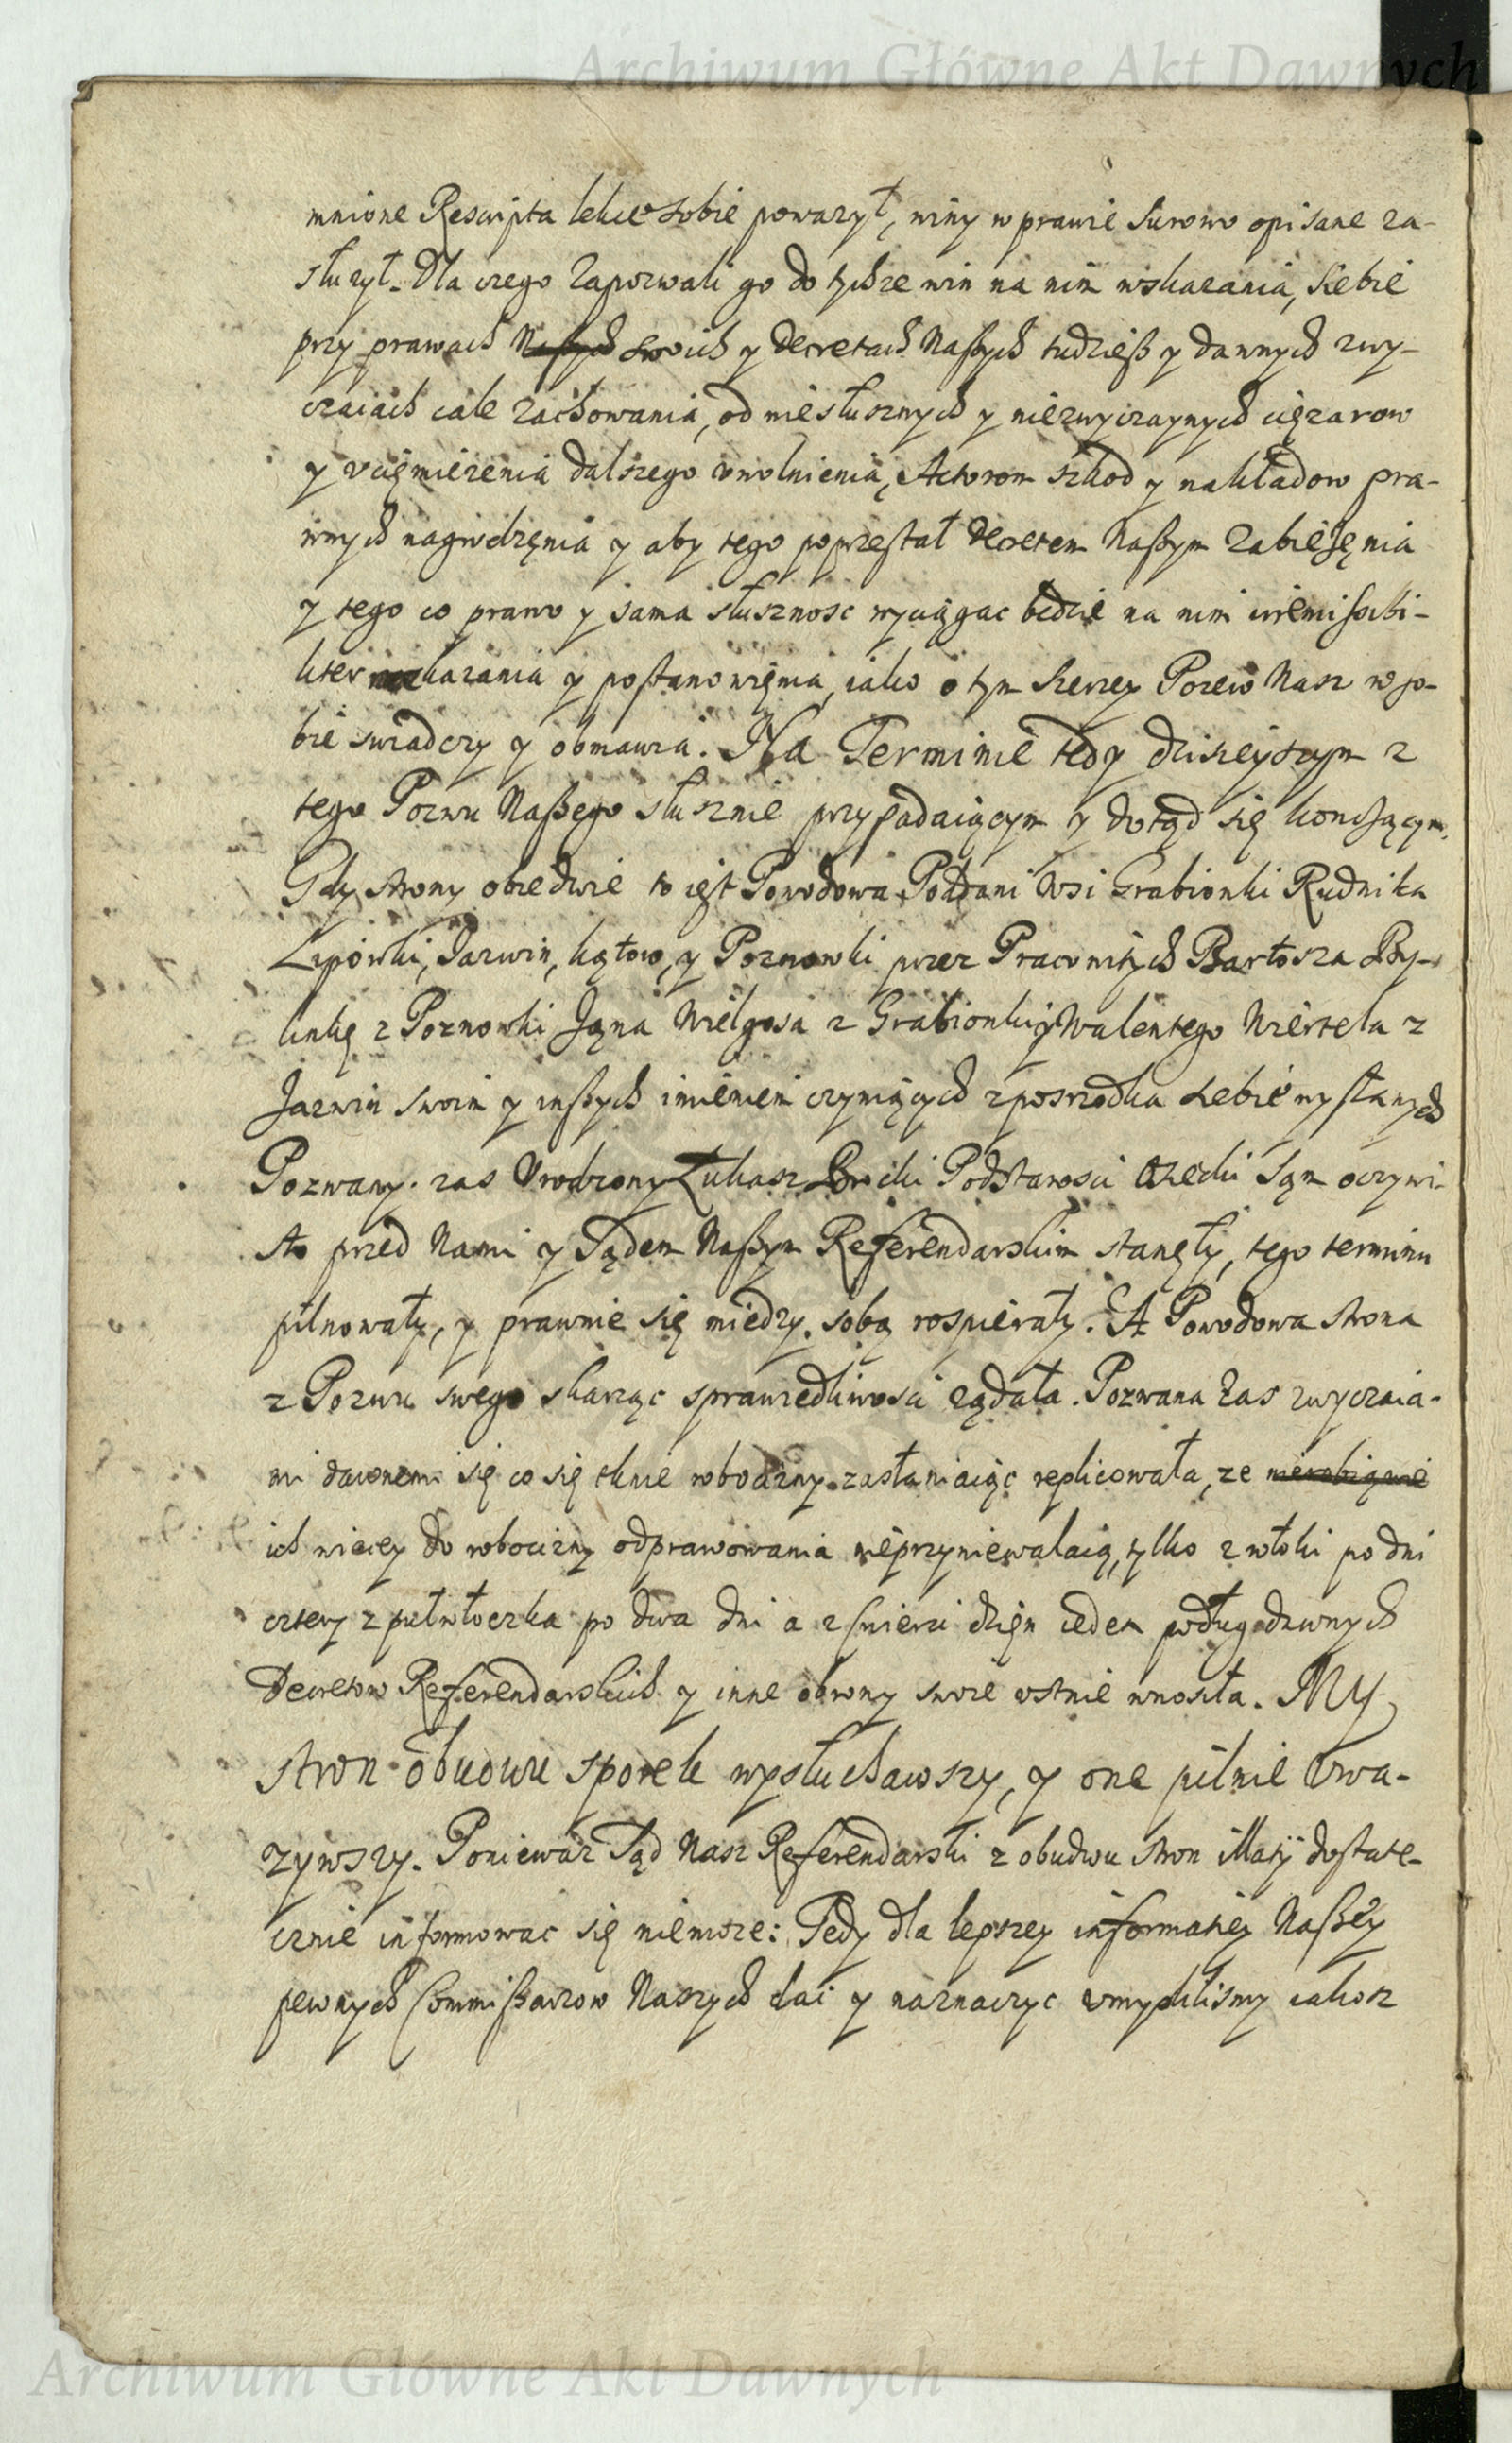 Archiwum Główne Akt Dawnych
mnione Rescripta lekce sobie poważył, winy w prawie surowo opisane za-
służył. Dla czego Zapozwali go do tychże win na nim wskazania, siebie
przy prawach Naßych swoich y Decretach Naßych tudzieß y dawnych zwy-
czaiach cale zachowania, od niesłusznych y niezwyczaynych ciężarow
y uciemiężenia dalszego uwolnienia, Actorom szkod y nakładow pra-
wnych nagrodzenia y aby tego poprzestał Decretem Naßym Zabieżenia
y tego co prawo y sama słusznosc wyciągac będzie na nim irremissibi-
liter wskazania y postanowienia, iako o tym szerzey Pozew Nasz w so-
bie swiadczy y obmawia. Na Terminie tedy dzisieyszym z
tego Pozwu Naßego słusznie przypadaiącym y dotąd się kończącym.
Gdy strony obiedwie to iest Powodowa Poddani Wsi Grabionki Rudnika
Lipowki, Jazwin, kątow, y Poznowki przez Pracowitych Bartosza By-
linkę z Poznowki Jana Wielgosa z Grabionki y Walentego Wiertela z
Jazwin swoim y inßych imieniem czyniących zposrzodka siebie wysłanych
Pozwany zas Urodzony Łukasz Podstarosci Osiecki Sąm oczywi-
sto przed Nami y Sądem Naßym Referendarskim stanęły, tego terminu
pilnowały, y prawnie się miedzy sobą rospierały. A Powodowa strona
z Pozwu swego skarżąc sprawiedliwosci ządała. Pozwana Zas zwyczaia-
mi dawnemi się co się tknie robocizny zasłaniaiąc replicowała, ze
ich wiecey do robocizny odprawowania nieprzyniewalaią, tylko z włoki po dni
cztery z pułwłoczka po dwa dni a z cwierci dzięn ieden podług dawnych
Decretow Referendarskich y inne obrony swoie ustnie wnosiła. My
stron obudwu sporek wysłuchawszy, y one pilnie uwa-
zywszy. Poniewaz Sąd Nasz Referendarski z obudwu stron illatij dostate-
cznie informowac się niemoze: Tedy dla lepszey informatiey Naßey
pewnych Commißarzow Naszych dac y naznaczyc umyslilismy iakosz
Archiwum Główne Akt Dawnych